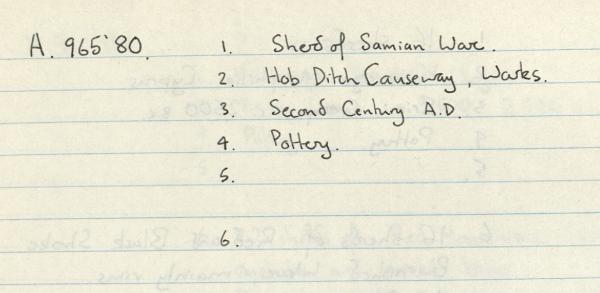 A. 965'80. 1. Sherd of Samian Ware.
2. Hob Ditch Causeway, Warks.
3. Second Century A.D.
4. Pottery.
5.
6.